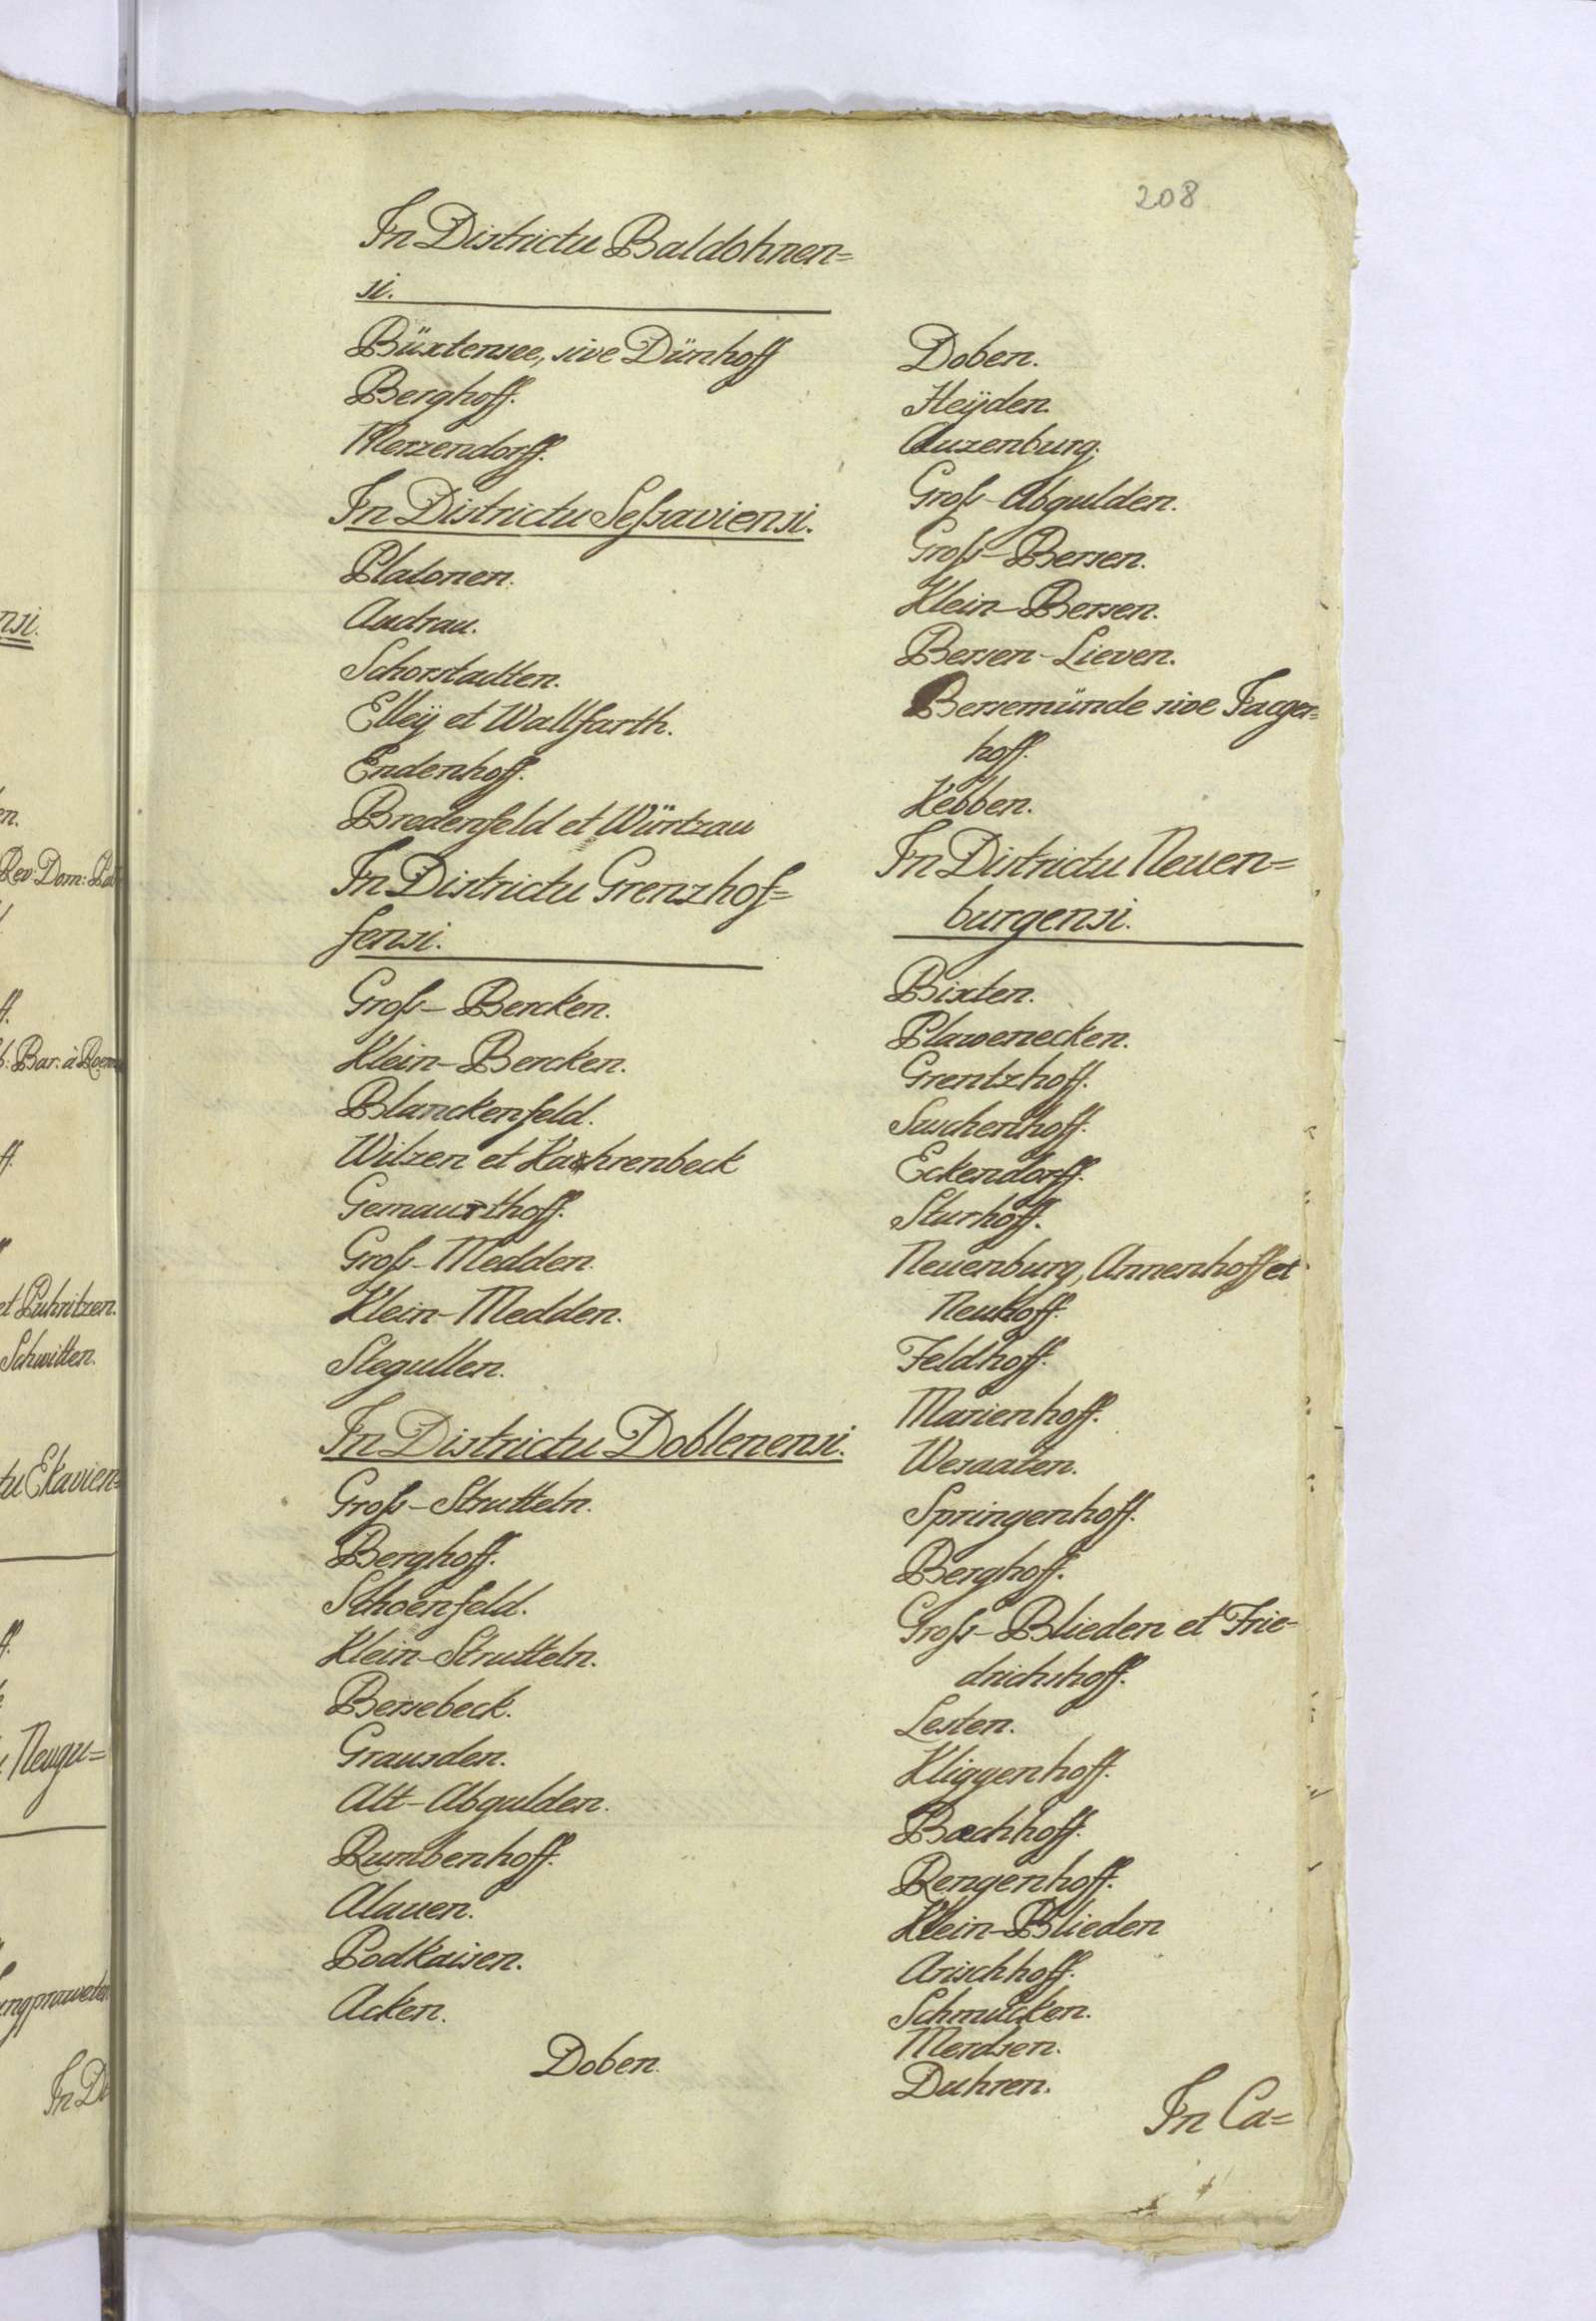 208
In Districtu Baldohnen=
si.
Büxtensee, sive Dünhoff
Berghoff.
Merzendorff.
In Districtu Seßaviensi.
Platonen.
Audrau.
Schorstadten.
Elleÿ et Wallfarth.
Endenhoff.
Bredenfeld et Würtzau
In Districtu Grenzhof=
fensi.
Groß-Bercken.
Klein-Bercken.
Blanckenfeld.
Wilzen et
Gemaurthoff.
Groß-Medden.
Klein-Medden.
Stegullen.
In Districtu Doblenensi.
Groß-Strutteln.
Berghoff.
Schoenfeld.
Klein-Strutteln.
Bersebeck.
Grausden.
Alt-Abgulden.
Rumbenhoff.
Alauen.
Podkaisen.
Acken.
Doben.
Doben.
Heÿden.
Auzenburg.
Groß-Abgulden.
Groß-Bersen.
Klein-Bersen.
Bersen-Lieven.
Bersemünde sive Jaeger=
hoff.
Kebben.
In Districtu Neuen=
burgensi.
Bixten.
Plawenecken.
Grentzhoff.
Suschenhoff.
Eckendorff.
Sturhoff.
Neuenburg, Annenhoff et
Neuhoff.
Feldhoff.
Marienhoff.
Wesaaten.
Springenhoff.
Berghoff.
Groß-Blieden et Frie-
drichshoff.
Lesten.
Kliggenhoff.
Bachhoff.
Rengenhoff.
Klein-Blieden
Arischhoff.
Schmucken.
Merdsen.
Duhren.
In Ca=
nsi.
en.
Rev: Dom:
Bar: à
et Puhritzen.
Schwitten.
tu Ekavien=
Neugu=